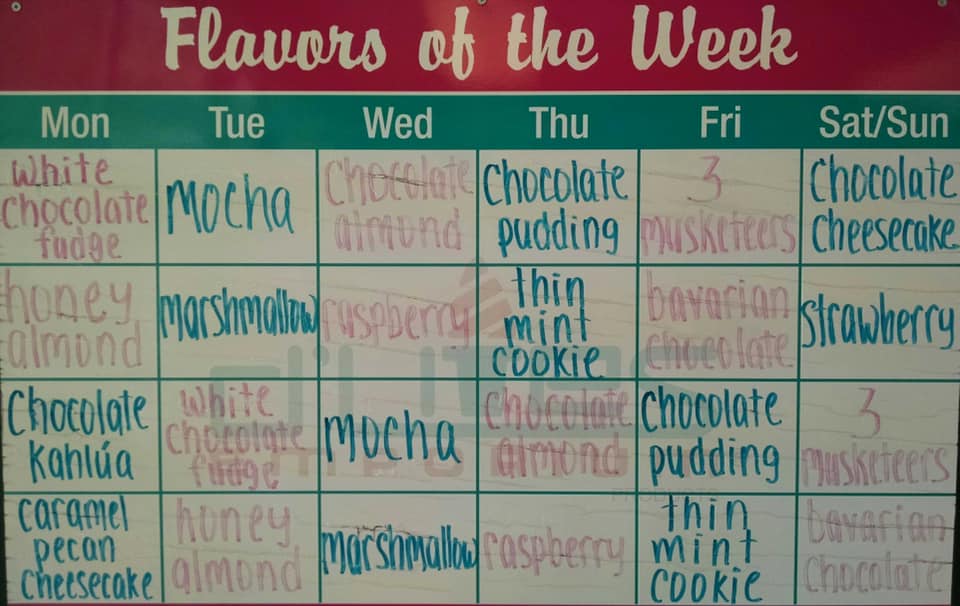 Flavors of the Week
Mon Tue Wed Thu Fri Sat/Sun
white chocolate fudge
mocha
chocolate almond
chocolate pudding
3 musketeers
chocolate cheesecake
honey almond
marshmallow
raspberry
thin mint cookie
bavarian chocolate
strawberry
chocolate kahlúa
white chocolate fudge
mocha
chocolate almond
chocolate pudding
3 musketeers
caramel pecan cheesecake
honey almond
marshmallow
raspberry
thin mint cookie
bavarian chocolate
PRODUCTS